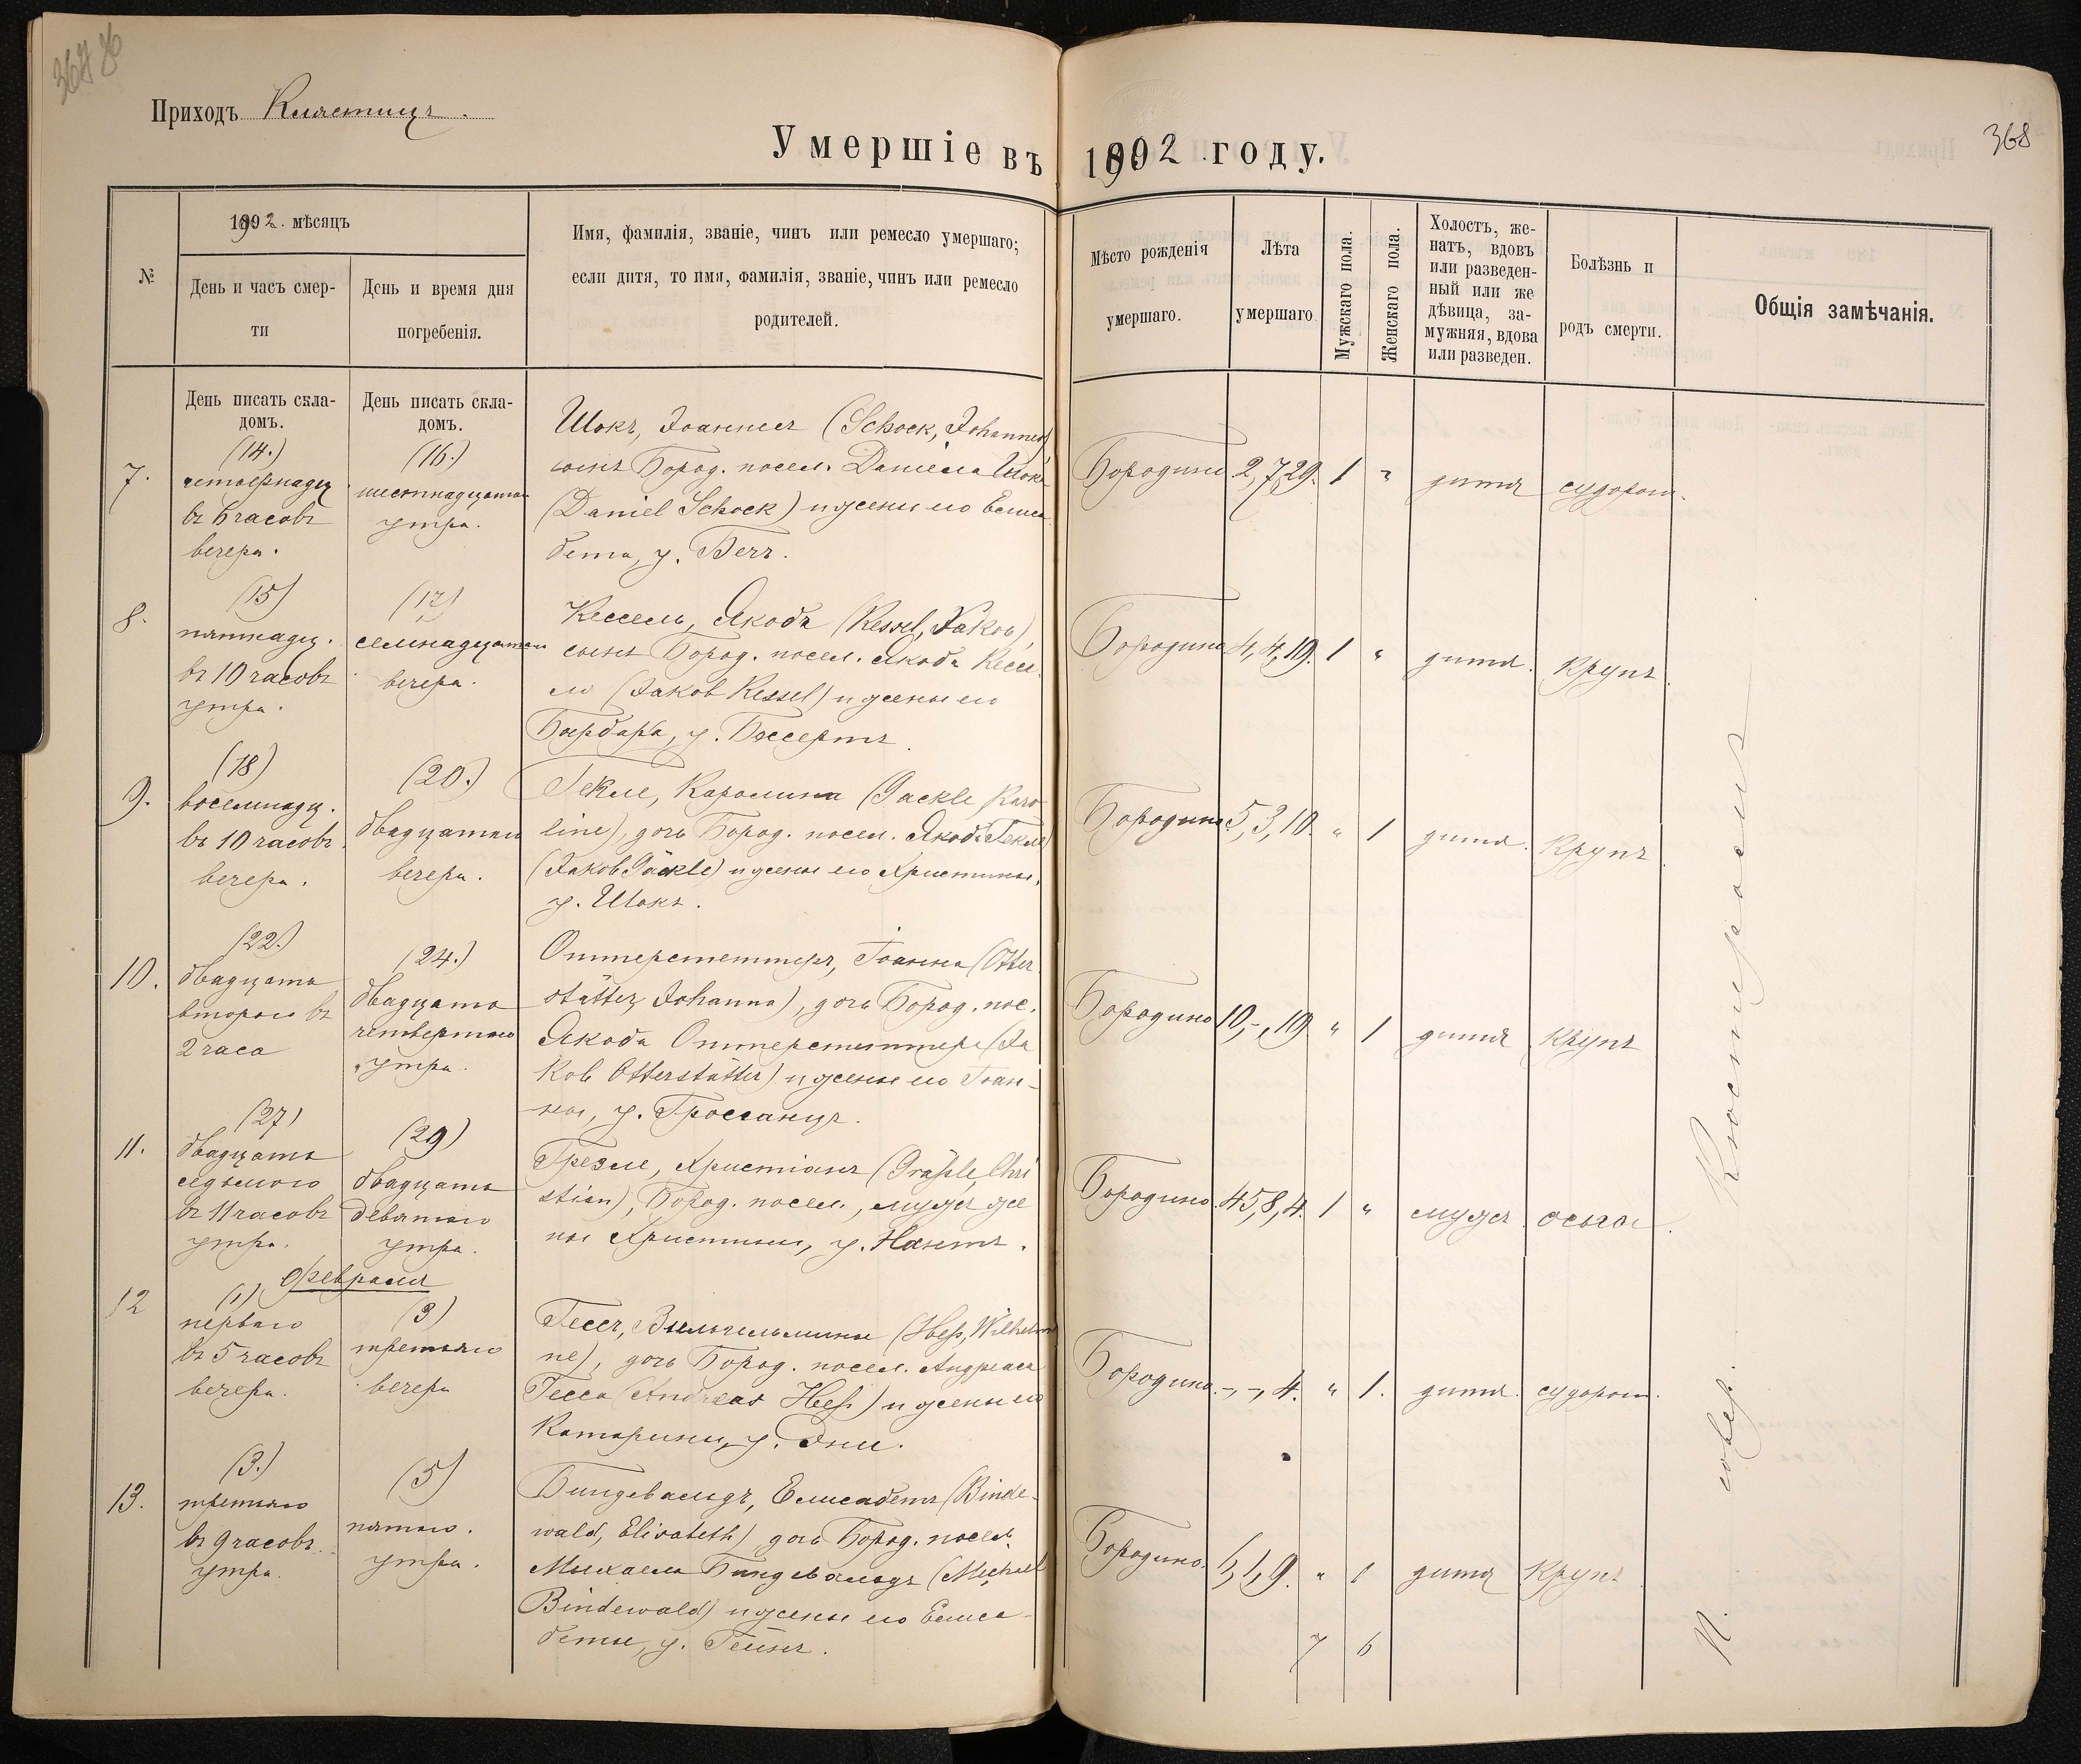 368
Приходъ Клястицъ.
Умершіе въ 1902 году.
№
1902. мѣсяцъ
День и часъ смер-
ти
День и время дня
погребенія.
Имя, фамилія, званіе, чинъ или ремесло умершаго;
если дитя, то имя, фамилія, званіе, чинъ или ремесло
родителей.
Мѣсто рожденія
умершаго.
Лѣта
умершаго
Мужскаго пола.
Женскаго пола.
Холостъ, же-
натъ, вдовъ
или разведен-
ный или же
дѣвица, за-
мужняя, вдова
или разведен.
Болѣзнь и
родъ смерти.
Общія замѣчанія.
День писать скла-
домъ.
День писать скла-
домъ.
7.
(14.)
четырнадц
въ 6 часовъ
вечера.
(16.)
шестнадцатаго
утра.
Шокъ, Іоаннесъ (Schock, Johannes)
сынъ Бород. посел. Даніела Шокъ
(Daniel Schock) и жены его Елиса
бета, у. Вечъ.
Бородино 2,7,29. 1 " дитя судорож.
8.
(15)
пятнадц.
въ 10 часовъ
утра.
(17)
семнадцатаго
вечера.
Кессель, Якобъ (Kessel, Jakob),
сынъ Бород. посел. Якоба Кессе-
ль (Jakob Kessel) и жены его
Барбара, у. Боссертъ.
Бородино 4,4,19. 1 " дитя. Крупъ.
9.
(18)
восемнадц.
въ 10 часовъ
вечера.
(20.)
двадцатаго
вечера.
Гекле, Каролина (Jackle Karo
line), дочь Бород. посел. Якоба Гекле
(Jakob Jäckle) и жены его Христины,
у. Шокъ.
Бородино 5,3,10. " 1 дитя. Крупъ.
10.
(22.)
двадцать
второго въ
2 часа
(24.)
двадцать
четвертаго
утра.
Оттерстеттеръ, Іоанна (Otter
stätter, Johanna), дочь Бород. пос.
Якоба Оттерстеттера (Ja
kob Otterstätter) и жены его Іоан-
ны, у. Гросганцъ.
Бородино 10,-,19. " 1 дитя Крупъ
11.
(27)
двадцать
седьмого
въ 11 часовъ
утра.
(29)
двадцать
девятаго
утра.
Грезле, Христіанъ (Gräßle, Chri
stian), Бород. посел., мужъ же
ны Христины, у. Нантъ.
Бородино. 45,8,4. 1 " мужъ оспа.
Февраля
12
(1)
перваго
въ 5 часовъ
вечера.
(3)
третьяго
вечера
Гессъ, Вильгельмина (Heß, Wilhelmi
ne), дочь Бород. посел. Андреаса
Гесса (Andreas Heß) и жены его
Катарины, у. Эни.
Бородино. -,-,4. " 1. дитя. судорож.
13.
(3.)
третьяго
въ 9 часовъ
утра.
(5)
пятаго.
утра.
Биндевальдъ, Елисабетъ (Binde-
wald, Elisabeth) дочь Бород. посел.
Михаела Биндевальдъ (Michael
Bindewald) и жены его Елиса-
беты, у. Гейнъ.
Бородино. 1,9. " 1 дитя Крупъ
7 6